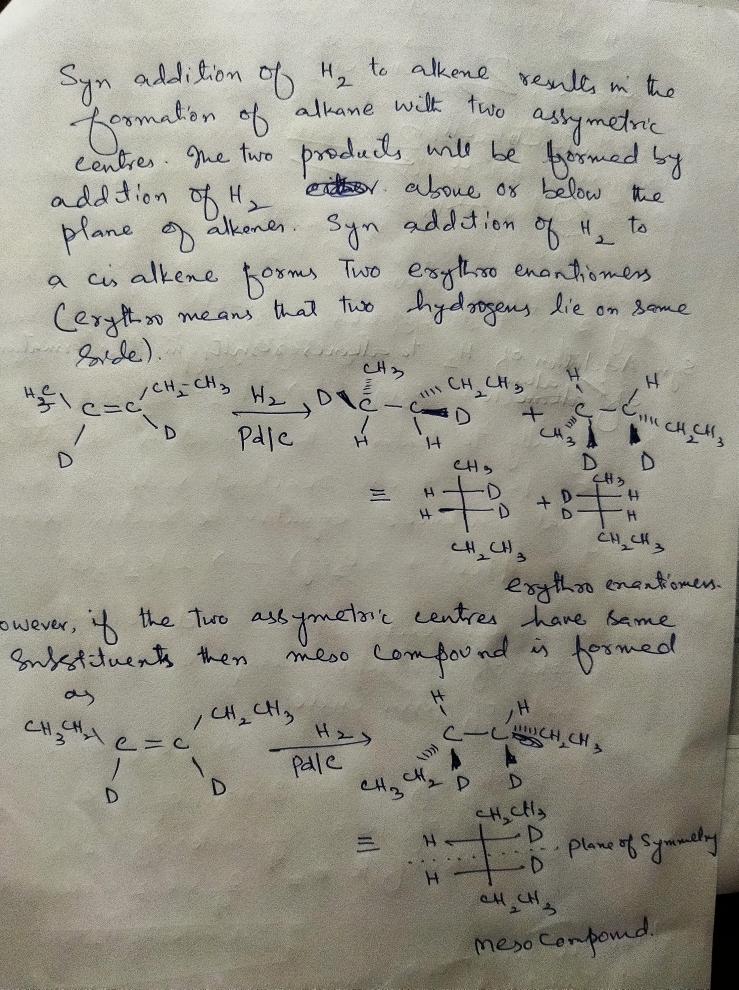 Syn addition of H₂ to alkene results in the
formation of alkane with two assymetric
centres. The two products will be formed by
addition of H₂ above or below the
plane of alkenes. Syn addition of H₂ to
a cis alkene forms Two erythro enantiomers
(erythro means that two hydrogens lie on same
side).
H₃C CH₂-CH₃ H₂ CH₃ H H
C=C D C - C CH₂CH₃ + C - C
D D Pd/C H H D CH₃ D D CH₂CH₃
≡ CH₃ + CH₃
H D D H
H D D H
CH₂CH₃ CH₂CH₃
erythro enantiomers.
owever, if the two assymetric centres have same
substituents then meso compound is formed
as
CH₃CH₂ CH₂CH₃ H₂ H H
C=C C-C CH₂CH₃
D D Pd/C CH₃CH₂ D D
≡ CH₂CH₃
H D
plane of symmetry
H D
CH₂CH₃
meso compound.